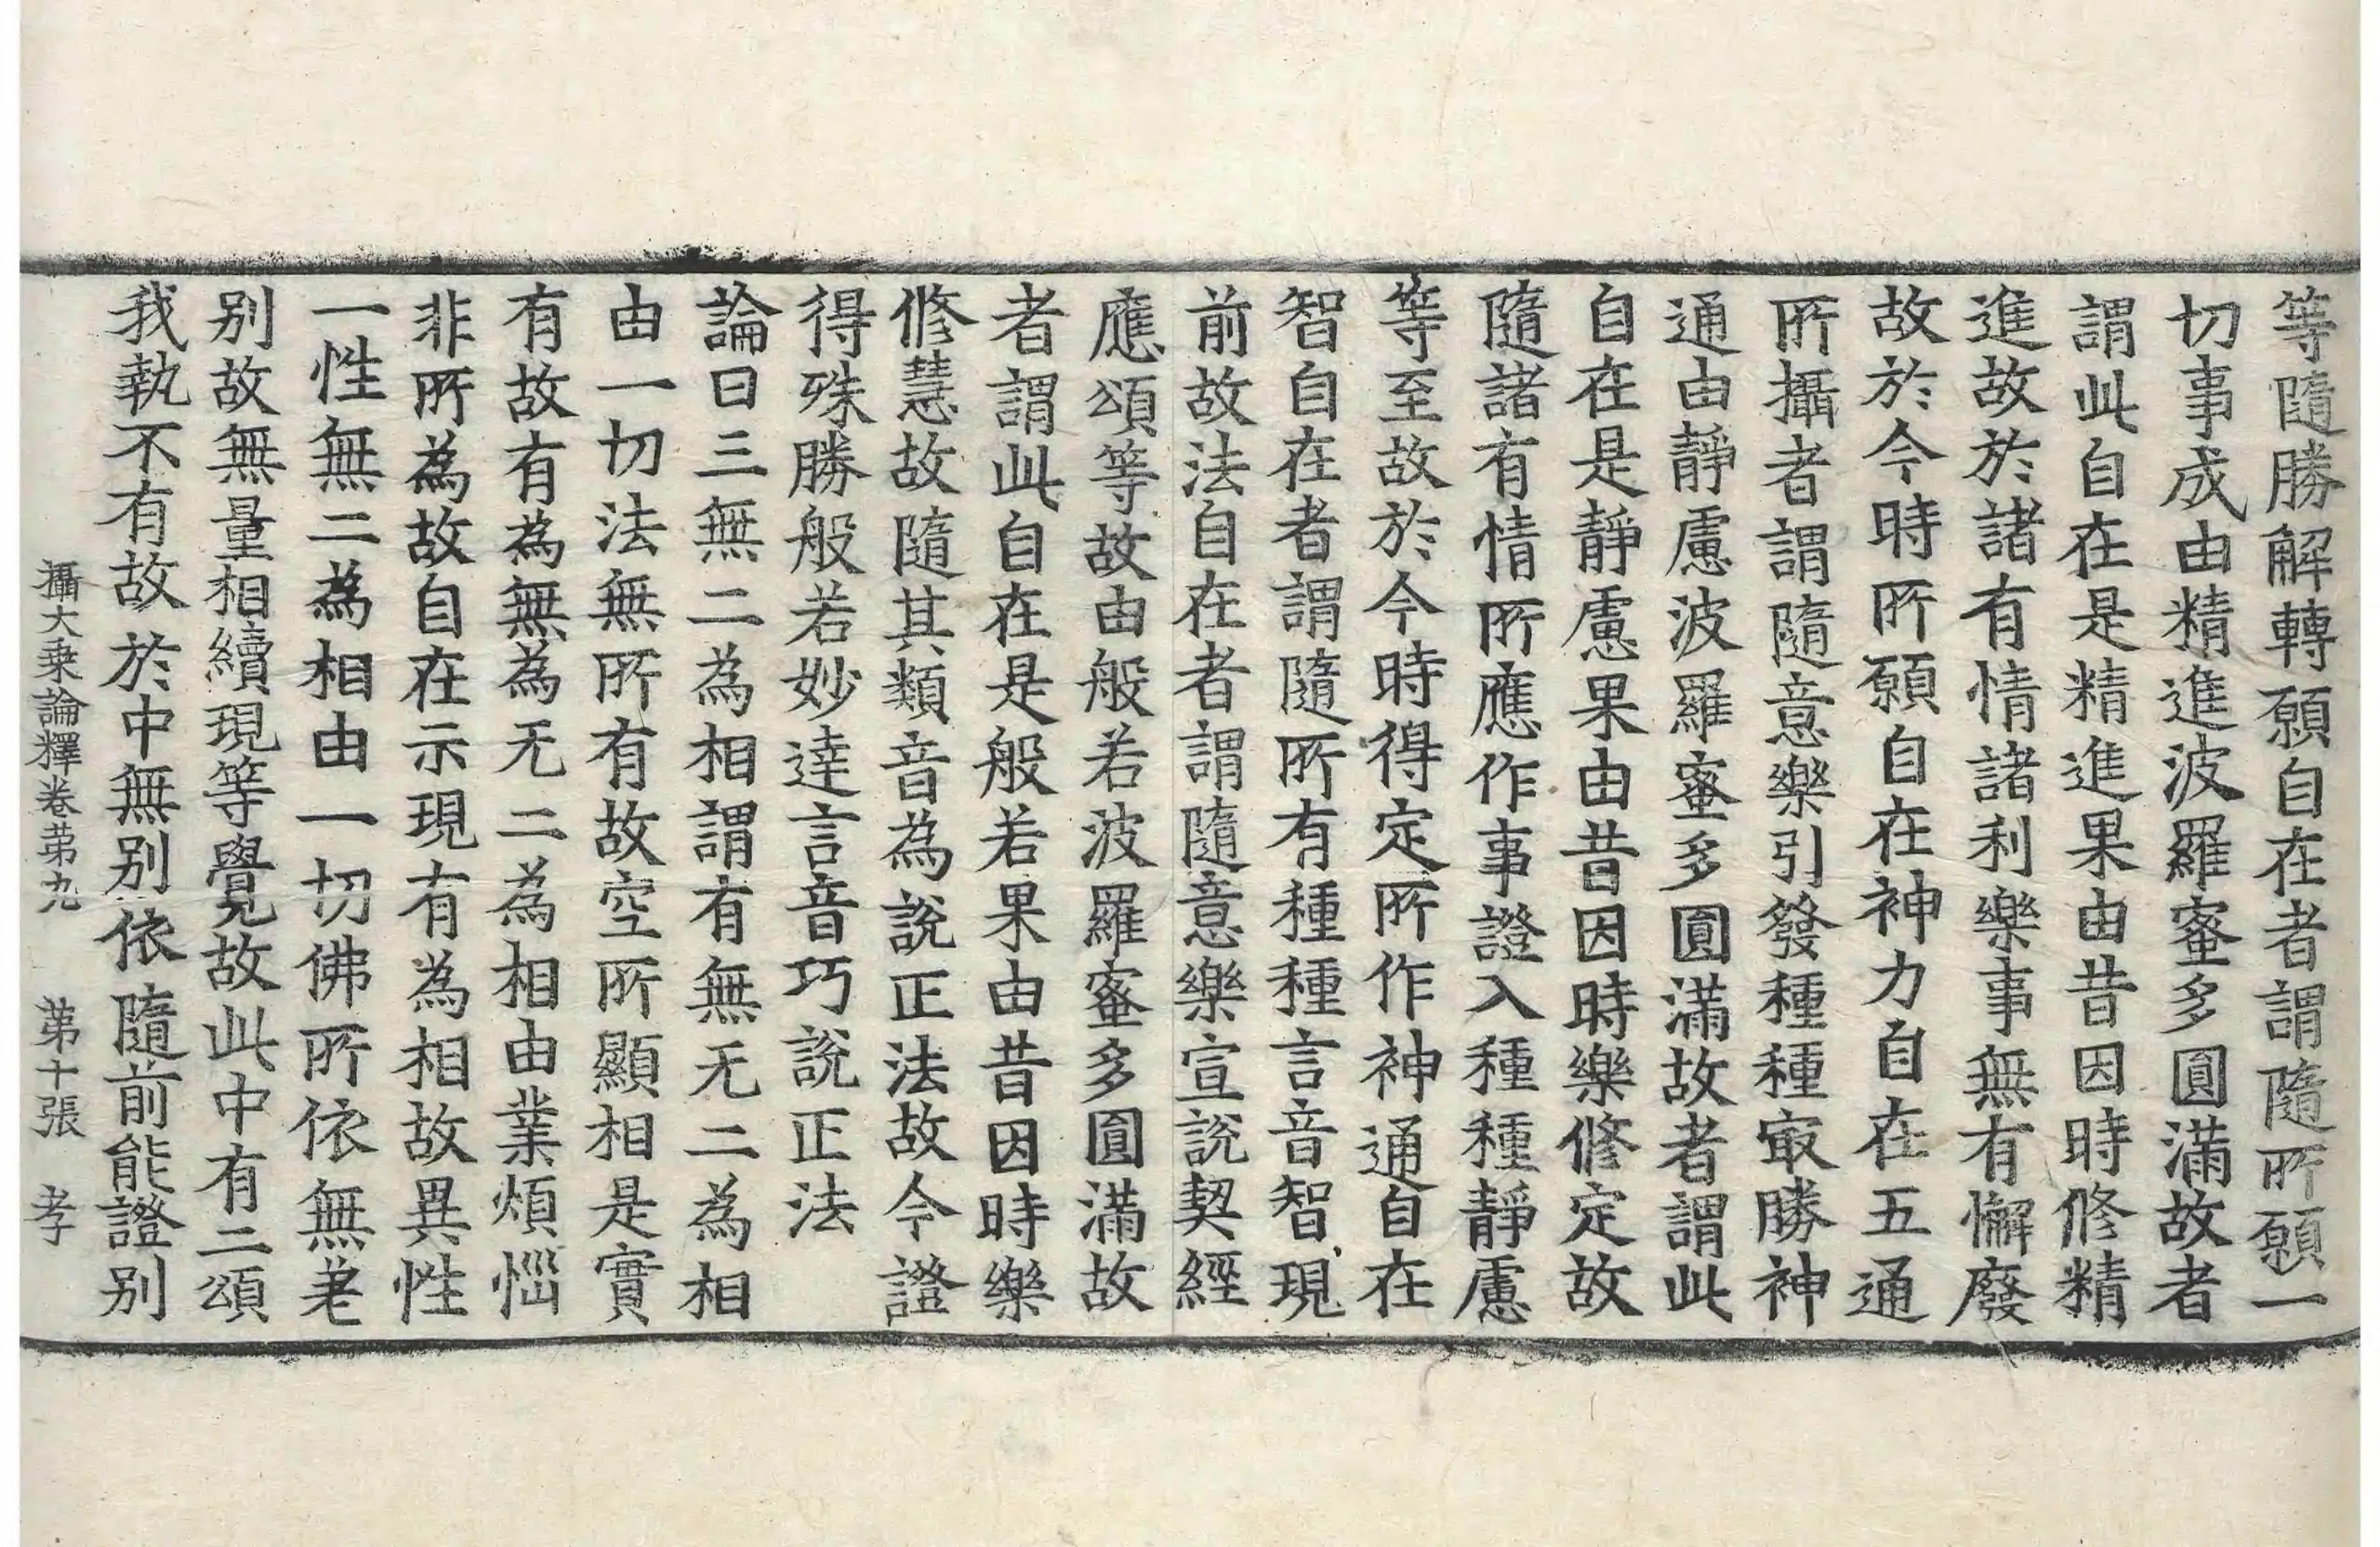 等隨勝解轉願自在者謂隨所願一
切事成由精進波羅蜜多圓滿故者
謂此自在是精進果由昔因時修精
進故於諸有情諸利樂事無有懈廢
故於今時所願自在神力自在五通
所攝者謂隨意樂引發種種㝡勝神
通由靜慮波羅蜜多圓滿故者謂此
自在是靜慮果由昔因時樂修定故
隨諸有情所應作事證入種種靜慮
等至故於今時得定所作神通自在
智自在者謂隨所有種種言音智現
前故法自在者謂隨意樂宣說契經
應頌等故由般若波羅蜜多圓滿故
者謂此自在是般若果由昔因時樂
修慧故隨其類音為說正法故今證
得殊勝般若妙達言音巧說正法
論曰三無二為相謂有無无二為相
由一切法無所有故空所顯相是實
有故有為無為无二為相由業煩惱
非所為故自在示現有為相故異性
一性無二為相由一切佛所依無差
别故無量相續現等覺故此中有二頌
我執不有故於中無别依隨前能證别
攝大乗論釋卷苐九 苐十張 孝